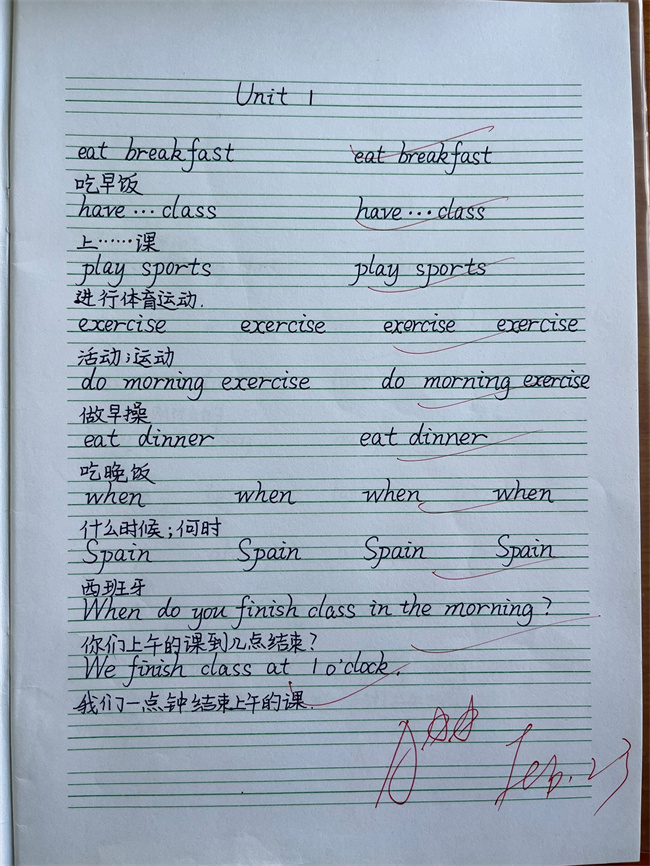 Unit 1
eat breakfast eat breakfast
吃早饭
have … class have … class
上……课
play sports play sports
进行体育运动.
exercise exercise exercise exercise
活动;运动
do morning exercise do morning exercise
做早操
eat dinner eat dinner
吃晚饭
when when when when
什么时候;何时
Spain Spain Spain Spain
西班牙
When do you finish class in the morning?
你们上午的课到几点结束?
We finish class at 1 o'clock.
我们一点钟结束上午的课.
A Feb. 23